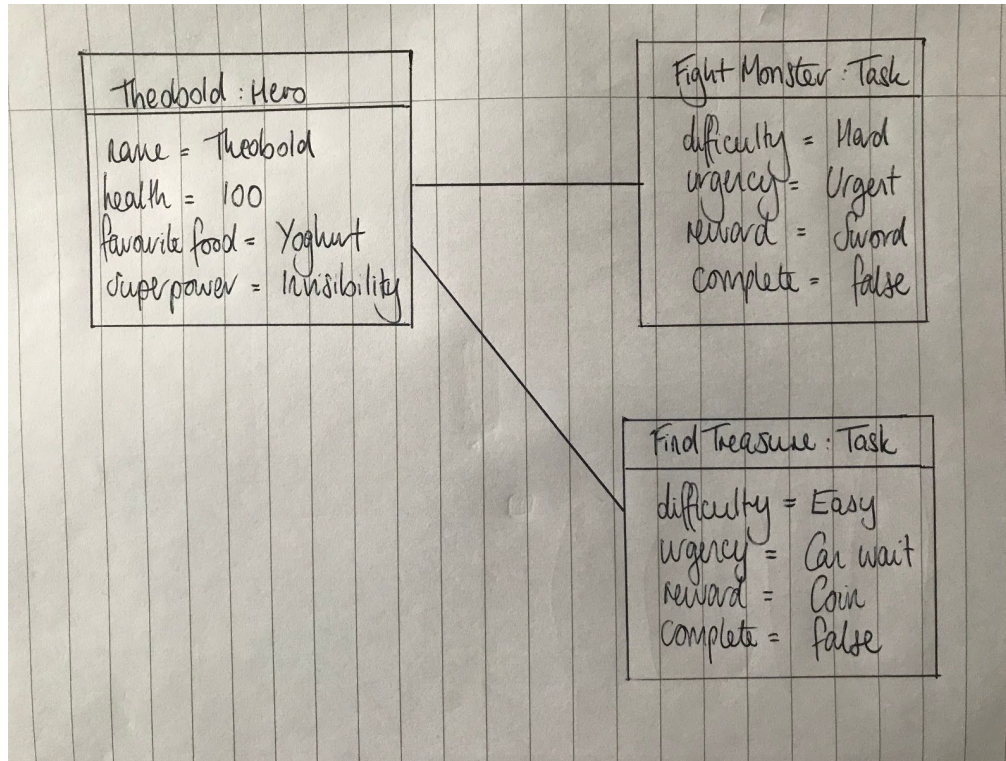 Theobold : Hero
name = Theobold
health = 100
favourite food = Yoghurt
superpower = Invisibility
Fight Monster : Task
difficulty = Hard
urgency = Urgent
reward = Sword
complete = false
Find Treasure : Task
difficulty = Easy
urgency = Can wait
reward = Coin
complete = false